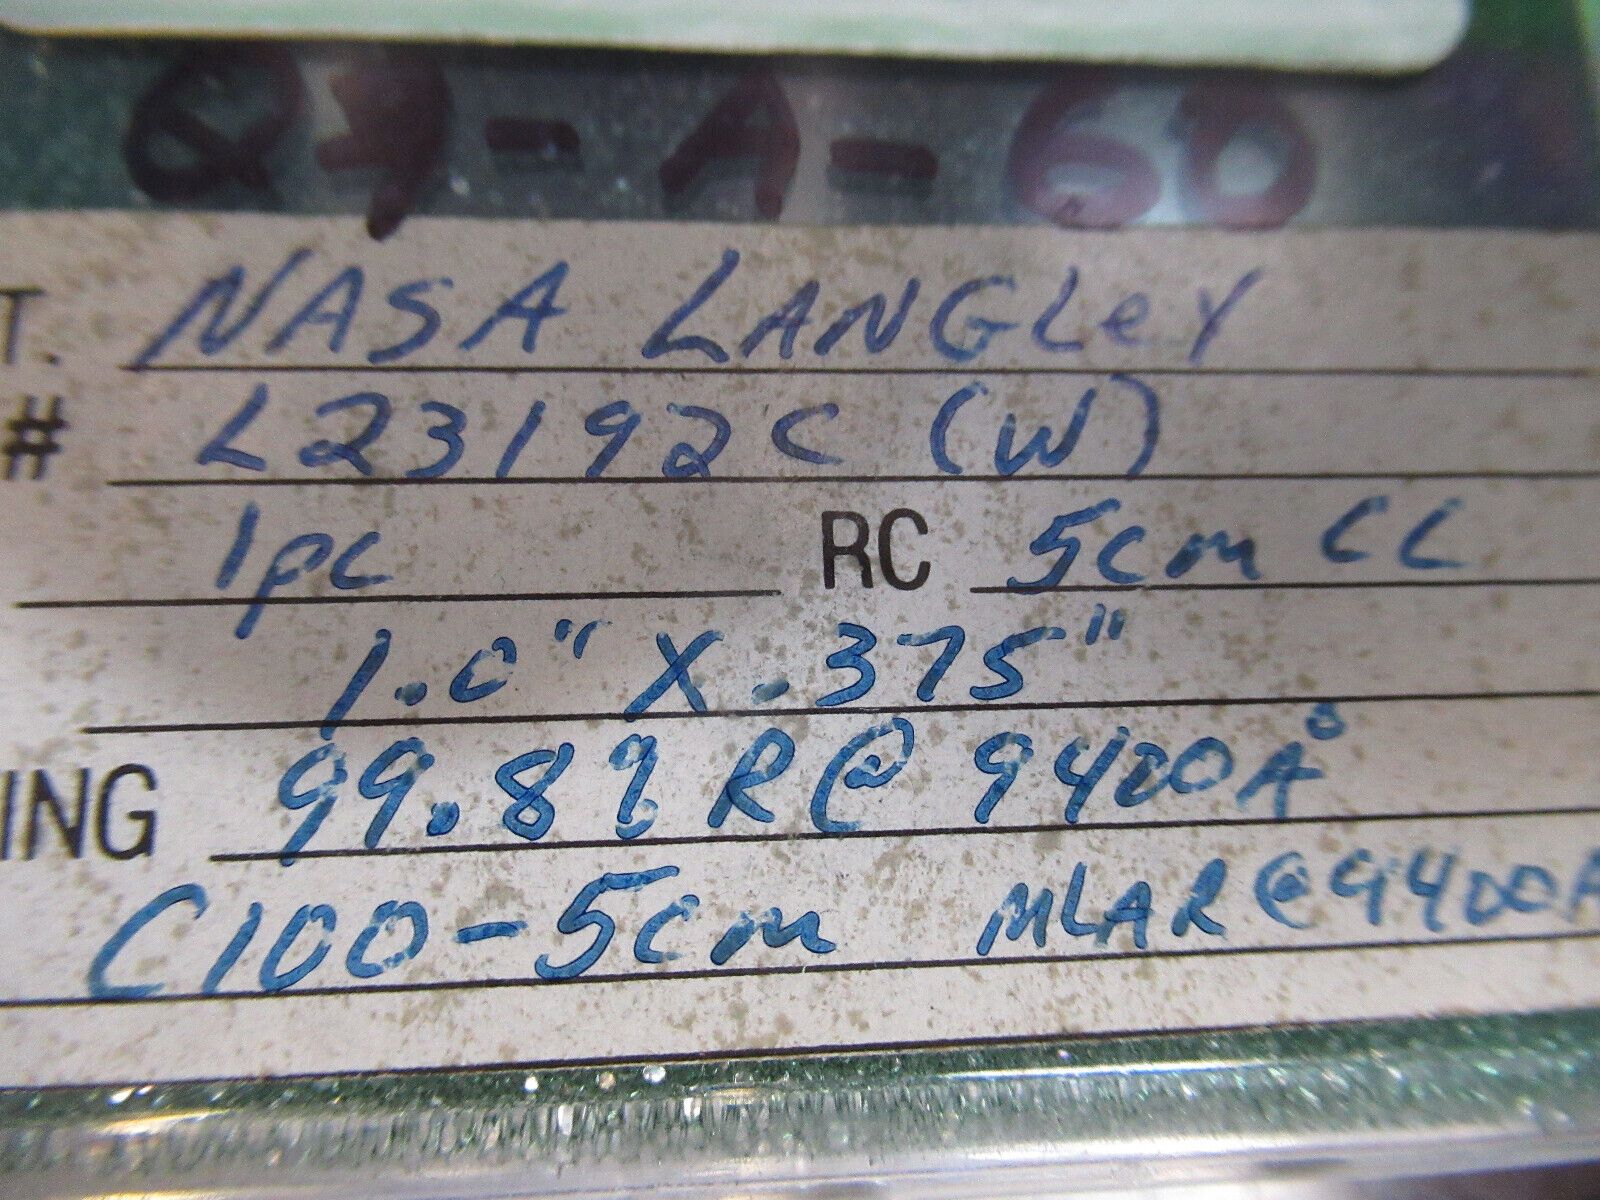 Q7-A-60
T. NASA LANGLEY
# L23192C (W)
1pc RC 5cm CC
1.0" X .375"
ING 99.8% R@ 9400A°
C100-5cm MLAR@9400A